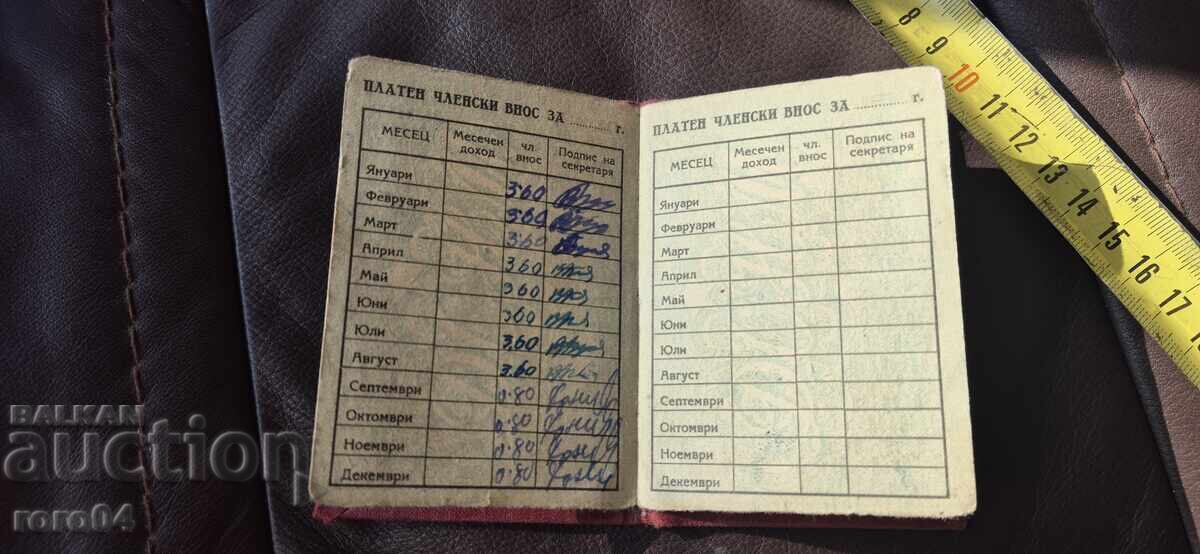 ПЛАТЕН ЧЛЕНСКИ ВНОС ЗА ............ г.
МЕСЕЦ Месечен доход чл. внос Подпис на секретаря
Януари 3.60
Февруари 3.60
Март 3.60
Април 3.60
Май 3.60
Юни 3.60
Юли 3.60
Август 3.60
Септември 0.80
Октомври 0.80
Ноември 0.80
Декември 0.80
ПЛАТЕН ЧЛЕНСКИ ВНОС ЗА ............ г.
МЕСЕЦ Месечен доход чл. внос Подпис на секретаря
Януари
Февруари
Март
Април
Май
Юни
Юли
Август
Септември
Октомври
Ноември
Декември
8 9 10 11 12 13 14 15 16 17
BALKAN
auction
roro04